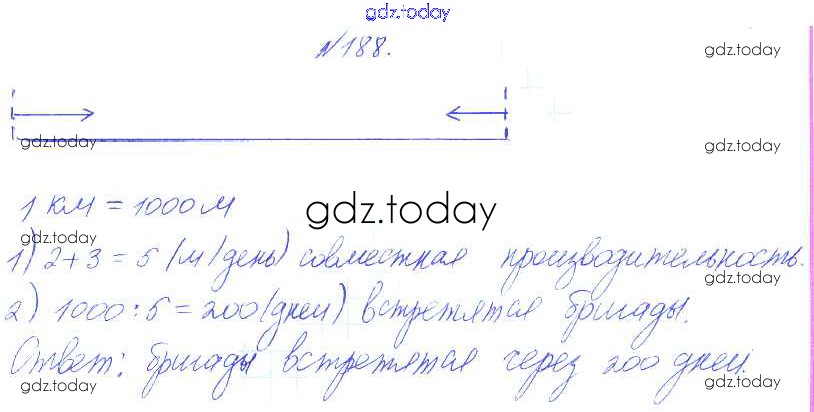 gdz.today
№188.
gdz.today
gdz.today
gdz.today
1 км = 1000 м
gdz.today
1) 2+3=5 (м/день) совместная производительность.
gdz.today
2) 1000:5=200 (дней) встретятся бригады.
Ответ: бригады встретятся через 200 дней.
gdz.today
gdz.today